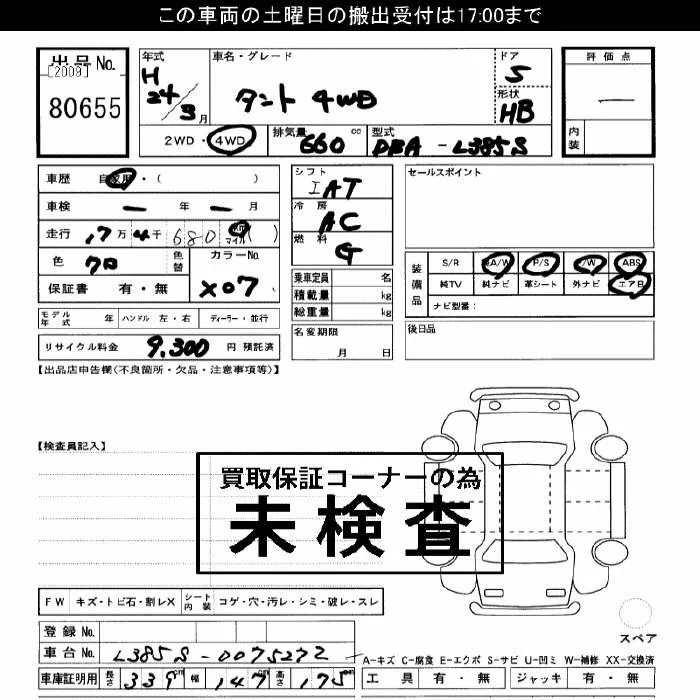 この車両の土曜日の搬出受付は17:00まで
出品No.
[2009]
80655
年式
H
24/3月
車名・グレード
タント 4WD
ドア
5
形状
HB
評価点
—
内装
2WD・4WD
排気量 660 cc
型式 DBA - L385S
車歴 自家用・( )
車検 — 年 — 月
走行 17万4千680 マイル ( )
色 クロ 色替
カラーNo. X07
保証書 有・無
モデル年式 年 ハンドル 左・右 ディーラー・並行
リサイクル料金 9,300 円 預託済
シフト
IAT
冷房
AC
燃料
G
乗車定員 名
積載量 kg
総重量 kg
名変期限
月 日
セールスポイント
装備品
S/R A/W P/S P/W ABS
純TV 純ナビ 革シート 外ナビ エアB
ナビ型番:
後日品
【出品店申告欄(不良箇所・欠品・注意事項等)】
【検査員記入】
買取保証コーナーの為
未検査
FW キズ・トビ石・割レX シート内装 コゲ・穴・汚レ・シミ・破レ・スレ
登録No.
車台No. L385S-0075272
車庫証明用 長さ 339cm 幅 147cm 高さ 175cm
スペア
A-キズ C-腐食 E-エクボ S-サビ U-凹ミ W-補修 XX-交換済
工具 有・無 ジャッキ 有・無